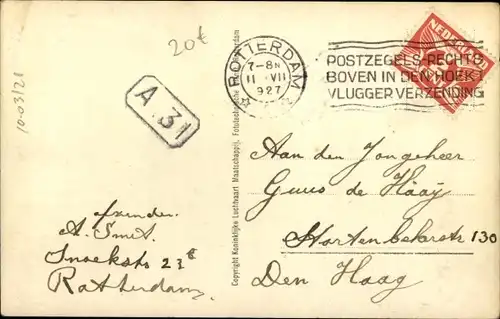 20€
10-03/21
A.31
ROTTERDAM
7-8N
11 VII
927
POSTZEGELS RECHTS
BOVEN IN DEN HOEK
VLUGGER VERZENDING
NEDERLAND
Copyright Koninklijke Luchtvaart Maatschappij.
Aan den Jongeheer
Guus de Haaÿ
130
Den Haag
afzender.
A. Smit.
Snoekstr 23
Rotterdam.